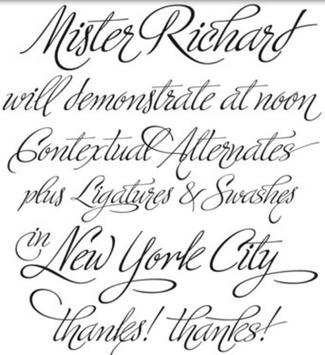 Mister Richard
will demonstrate at noon
Contextual Alternates
plus Ligatures & Swashes
in New York City
thanks! thanks!